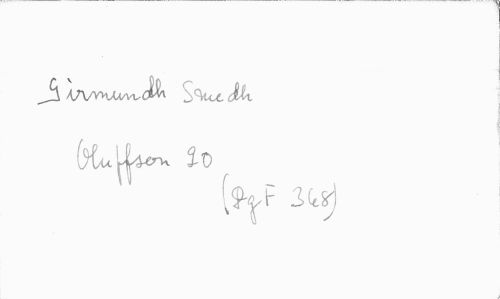 Girmundh Smedh
Oluffson 20
(DgF 348)